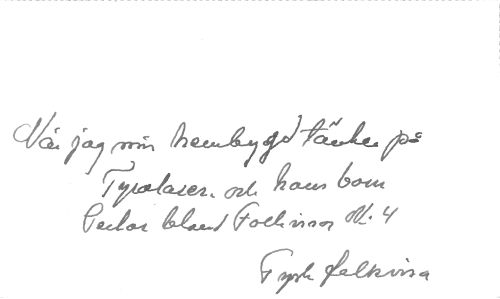 När jag min hembygd tänker på
Tyrolaren och hans barn
Pärlor bland Folkvisor Nr. 4
Tysk folkvisa